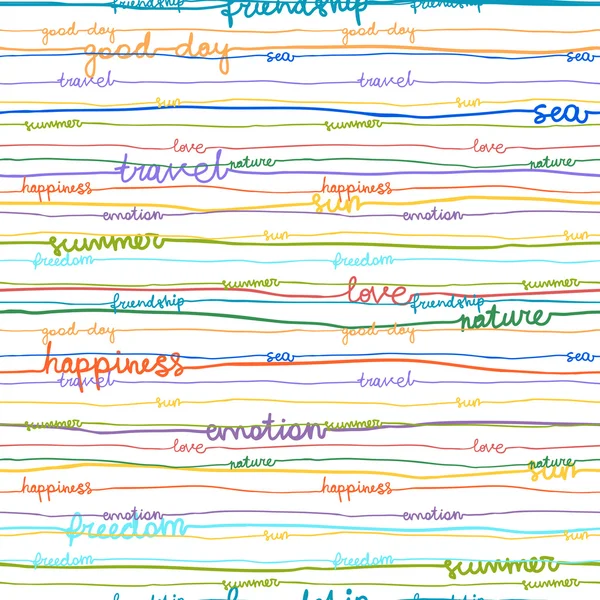 friendship friendship
good day good day
good day sea sea
travel travel
sun sun
sea
summer summer
love love
travel nature nature
happiness happiness
sun
emotion emotion
summer sun sun
freedom freedom
summer summer
love
friendship friendship
nature
good day good day
happiness sea sea
travel travel
sun sun
summer emotion summer
love love
nature nature
sun
happiness happiness
emotion emotion
freedom
sun sun
freedom freedom
summer
summer summer
friendship friendship friendship